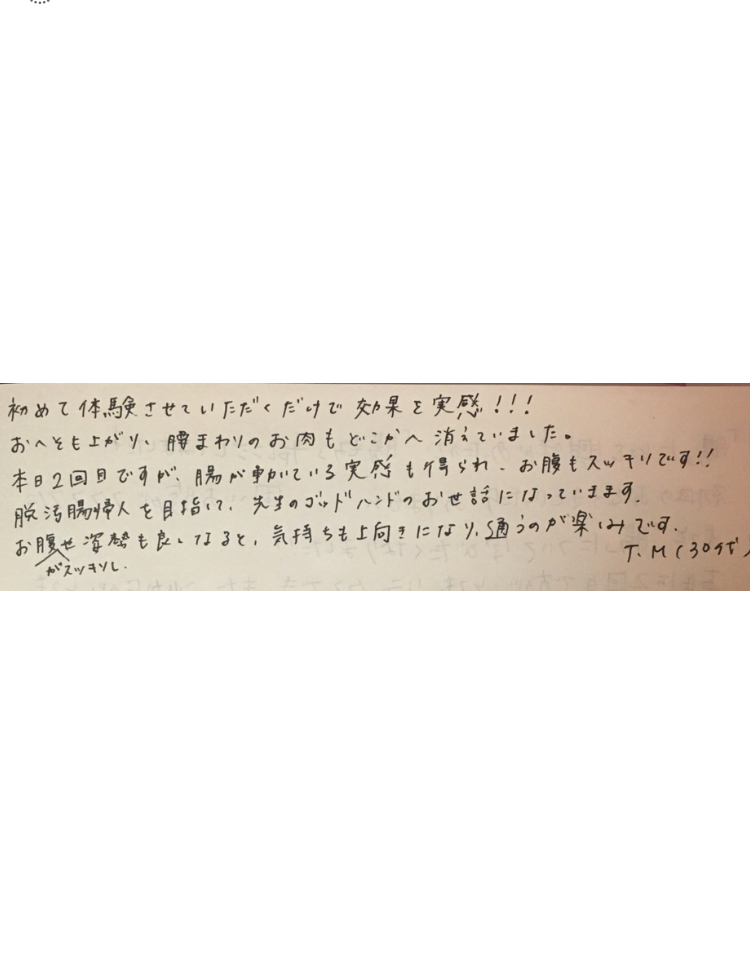 初めて体験させていただくだけで効果を実感!!!
おへそも上がり、腰まわりのお肉もどこかへ消えていました。
本日2回目ですが、腸が動いている実感も得られ、お腹もスッキリです!!
脱汚腸婦人を目指して、先生のゴッドハンドのお世話になっています。
お腹 姿勢も良くなると、気持ちも上向きになり、通うのが楽しみです。
がスッキリし、
T.M(30代)